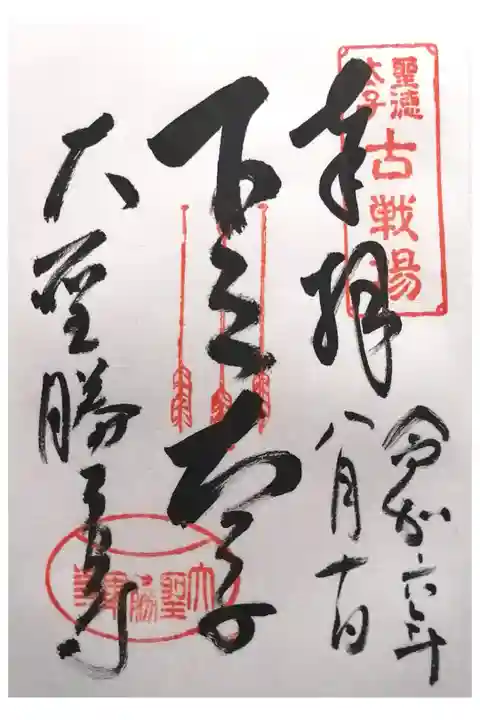 聖徳
太子
古戦場
奉拝
令和六年
八月十日
下之太子
大聖勝軍寺
大聖勝軍寺